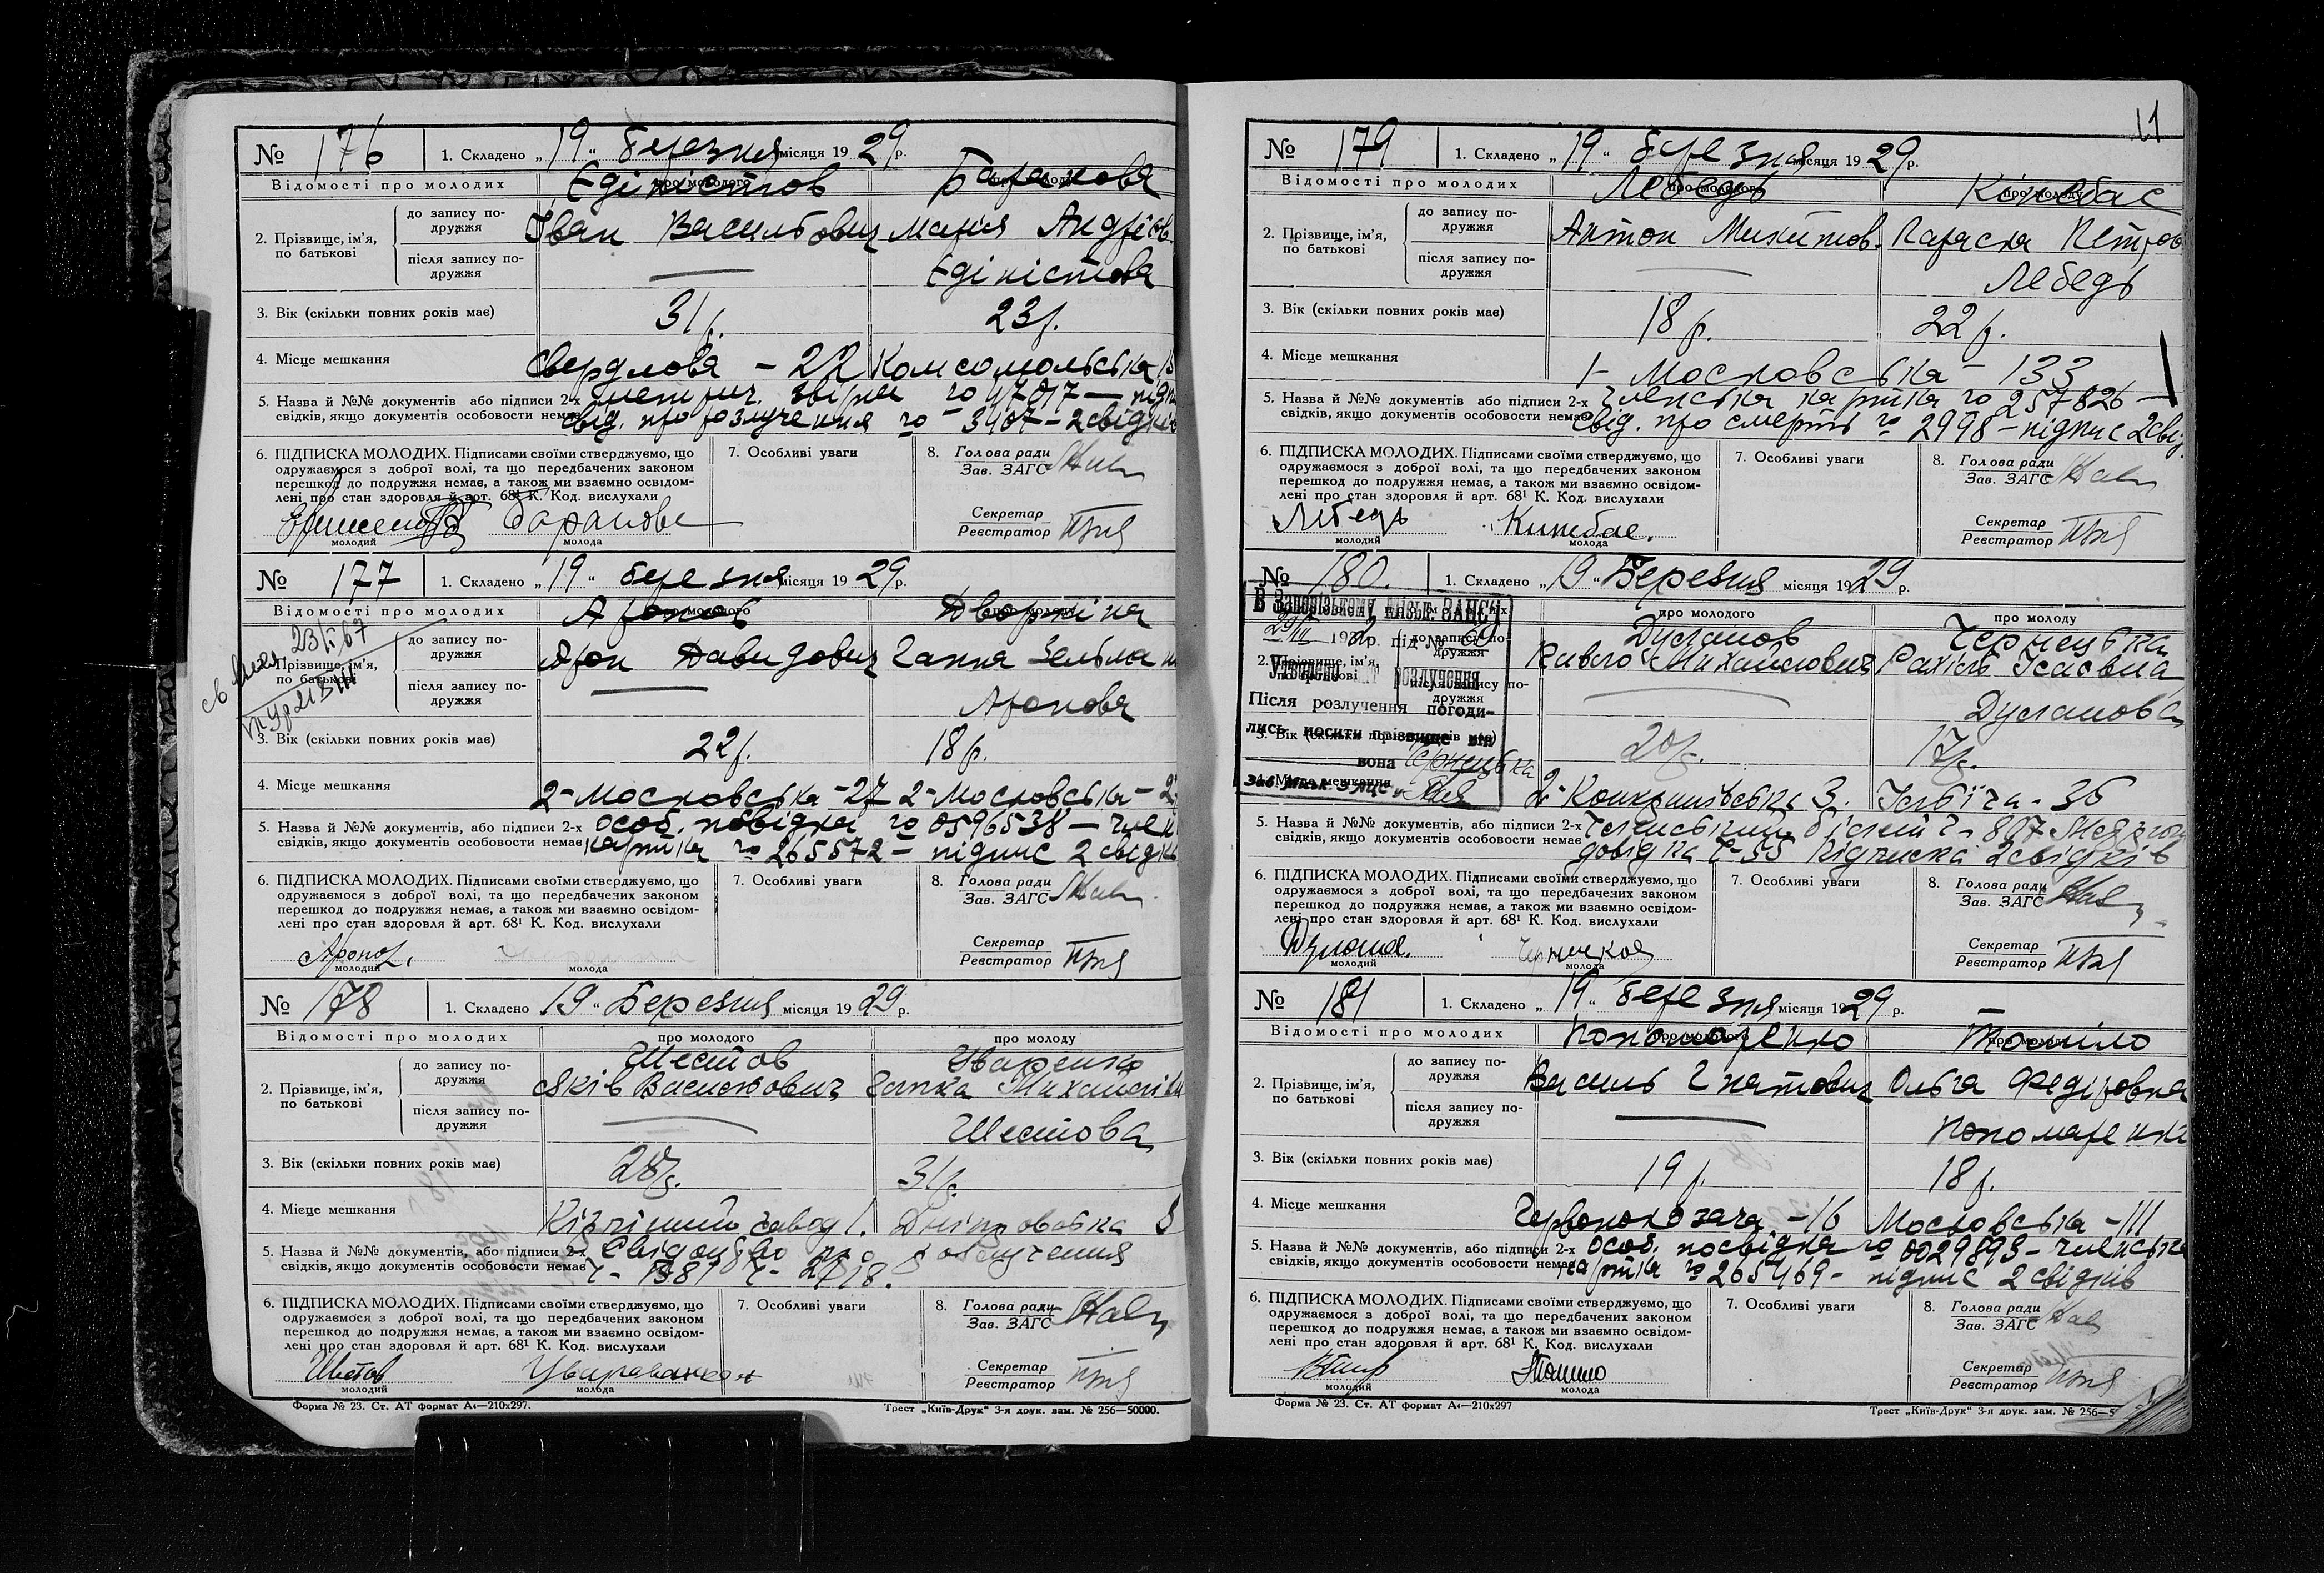 № 176 1. Складено „19“ березня місяця 1929 р.
Відомості про молодих про молодого про молоду
Єдіністов Баранова
2. Прізвище, ім'я, по батькові
до запису подружжя
Іван Васильович Марія Андріївн
після запису подружжя
Єдіністова
3. Вік (скільки повних років має) 31 р. 23 р.
4. Місце мешкання Свердлова - 22 Комсомольська
5. Назва й №№ документів або підписи 2-х метрич. звірен. чо 47017 —
свідків, якщо документів особовости немає свід. про розлучення чо 3907 - 2 свідків
6. ПІДПИСКА МОЛОДИХ. Підписами своїми стверджуємо, що
одружаємося з доброї волі, та що передбачених законом
перешкод до подружжя немає, а також ми взаємно освідом-
лені про стан здоровля й арт. 68¹ К. Код. вислухали
Баранова
молодий молода
7. Особливі уваги
8. Голова ради
Зав. ЗАГС
Секретар
Реєстратор
№ 177 1. Складено „19“ березня місяця 1929 р.
Відомості про молодих про молодого про молоду
Аронов Дворкіна
23/I 67
2. Прізвище, ім'я, по батькові
до запису подружжя
Арон Давидович Ганна
після запису подружжя
Аронова
3. Вік (скільки повних років має) 22 р. 18 р.
4. Місце мешкання 2-Московська - 27 2-Московська -
5. Назва й №№ документів, або підписи 2-х особ. посвідка чо 0596538 — член
свідків, якщо документів особовости немає картка чо 265572 - підпис 2 свідків
6. ПІДПИСКА МОЛОДИХ. Підписами своїми стверджуємо, що
одружаємося з доброї волі, та що передбачених законом
перешкод до подружжя немає, а також ми взаємно освідом-
лені про стан здоровля й арт. 68¹ К. Код. вислухали
Аронов
молодий молода
7. Особливі уваги
8. Голова ради
Зав. ЗАГС
Секретар
Реєстратор
№ 178 1. Складено „19“ Березня місяця 1929 р.
Відомості про молодих про молодого про молоду
Шестов
2. Прізвище, ім'я, по батькові
до запису подружжя
Яків Васильович Ганна Михайлівн
після запису подружжя
Шестова
3. Вік (скільки повних років має) 28 р. 31 р.
4. Місце мешкання завод 1. Дніпровська
5. Назва й №№ документів, або підписи 2-х Свідоцтво про розлучення
свідків, якщо документів особовости немає ч - 1381 ч - 2718.
6. ПІДПИСКА МОЛОДИХ. Підписами своїми стверджуємо, що
одружаємося з доброї волі, та що передбачених законом
перешкод до подружжя немає, а також ми взаємно освідом-
лені про стан здоровля й арт. 68¹ К. Код. вислухали
Шестов
молодий молода
7. Особливі уваги
8. Голова ради
Зав. ЗАГС
Секретар
Реєстратор
Форма № 23. Ст. АТ формат А4—210x297. Трест „Київ-Друк“ 3-я друк. зам. № 256—50000.
11
№ 179 1. Складено „19“ березня місяця 1929 р.
Відомості про молодих про молодого про молоду
Лебедь
2. Прізвище, ім'я, по батькові
до запису подружжя
Антон Микитов. Параска Петров
після запису подружжя
Лебедь
3. Вік (скільки повних років має) 18 р. 22 р.
4. Місце мешкання 1- Московська - 133
5. Назва й №№ документів або підписи 2-х членська картка чо 257826 —
свідків, якщо документів особовости немає свід. про смерть чо 2998 - підпис 2 свід
6. ПІДПИСКА МОЛОДИХ. Підписами своїми стверджуємо, що
одружаємося з доброї волі, та що передбачених законом
перешкод до подружжя немає, а також ми взаємно освідом-
лені про стан здоровля й арт. 68¹ К. Код. вислухали
Лебедь
молодий молода
7. Особливі уваги
8. Голова ради
Зав. ЗАГС
Секретар
Реєстратор
№ 180. 1. Складено „19“ Березня місяця 1929 р.
Відомості про молодих про молодого про молоду
В Запорізькому міськ. ЗАГСУ
Чернецька
2. Прізвище, ім'я, по батькові
до запису подружжя
Павло Михайлович Рахіль Ісаєвна
після запису подружжя
Після розлучення погоди-
лись носити прізвище він
вона Чернецька
Зав. міськ. ЗАГС
3. Вік (скільки повних років має) 20 р. 17 р.
4. Місце мешкання 3. 36
5. Назва й №№ документів, або підписи 2-х Членський білет ч - 807
свідків, якщо документів особовости немає довідка ч - 55 Підписка 2 свідків
6. ПІДПИСКА МОЛОДИХ. Підписами своїми стверджуємо, що
одружаємося з доброї волі, та що передбачених законом
перешкод до подружжя немає, а також ми взаємно освідом-
лені про стан здоровля й арт. 68¹ К. Код. вислухали
молодий молода
7. Особливі уваги
8. Голова ради
Зав. ЗАГС
Секретар
Реєстратор
№ 181 1. Складено „19“ березня місяця 1929 р.
Відомості про молодих про молодого про молоду
Пономаренко Томіло
2. Прізвище, ім'я, по батькові
до запису подружжя
Василь Гнатович Ольга Федіровна
після запису подружжя
Пономаренко
3. Вік (скільки повних років має) 19 р. 18 р.
4. Місце мешкання Червонокозача - 16 Московська - 111
5. Назва й №№ документів, або підписи 2-х особ. посвідка чо 0029893 - членська
свідків, якщо документів особовости немає картка чо 265469 - підпис 2 свідків
6. ПІДПИСКА МОЛОДИХ. Підписами своїми стверджуємо, що
одружаємося з доброї волі, та що передбачених законом
перешкод до подружжя немає, а також ми взаємно освідом-
лені про стан здоровля й арт. 68¹ К. Код. вислухали
Томило
молодий молода
7. Особливі уваги
8. Голова ради
Зав. ЗАГС
Секретар
Реєстратор
Форма № 23. Ст. АТ формат А4—210x297 Трест „Київ-Друк“ 3-я друк. зам. № 256—5